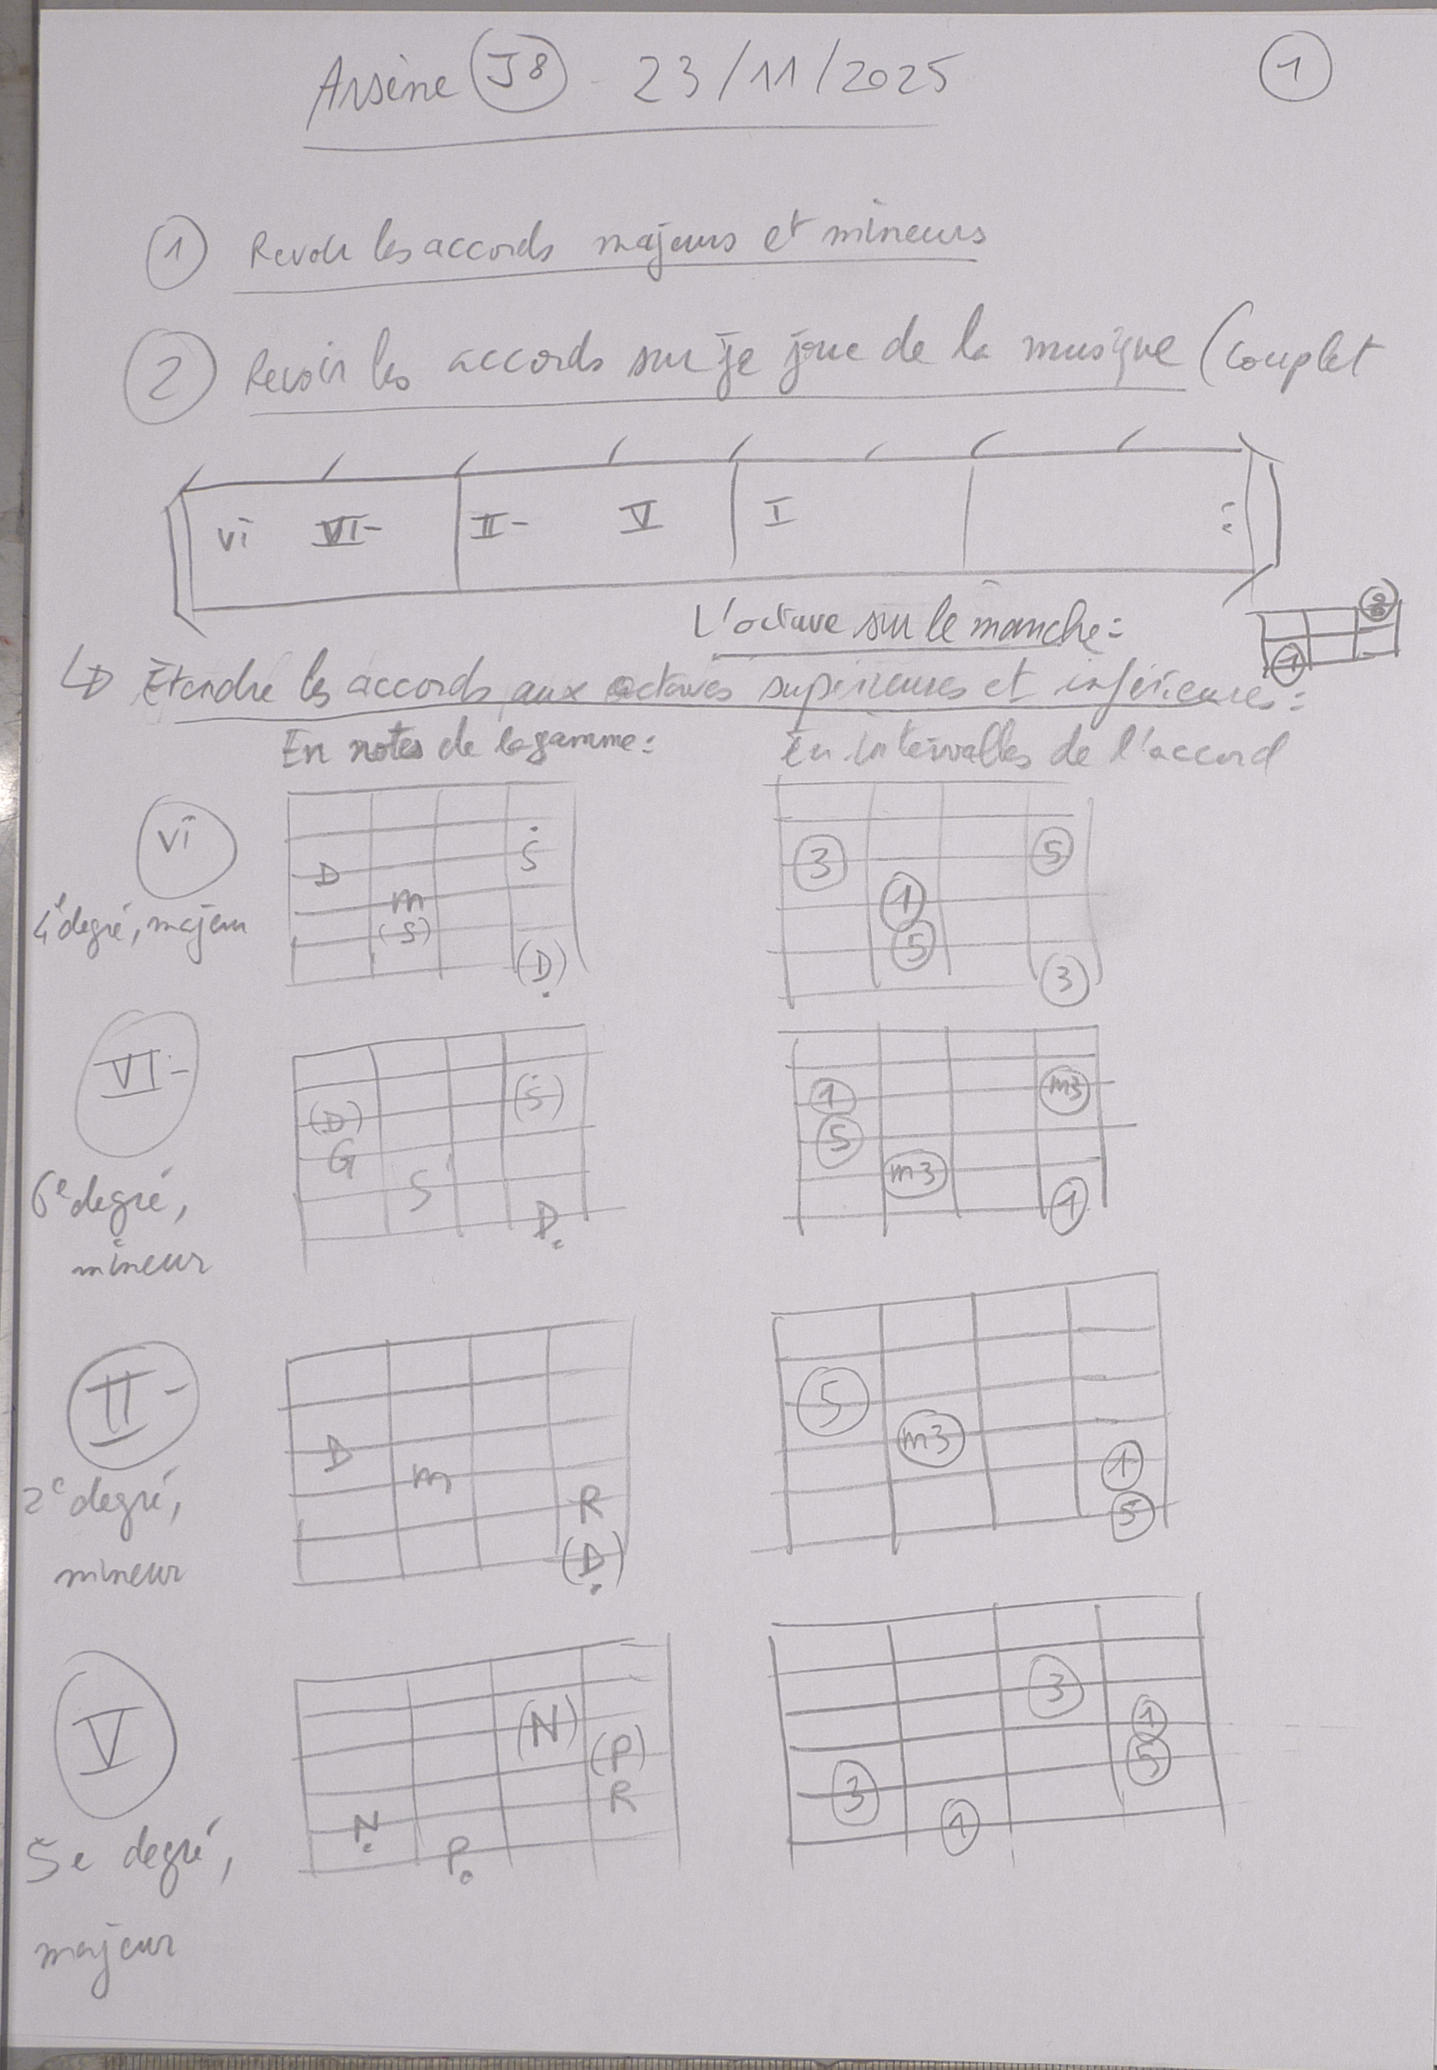 Arsène J8 - 23/11/2025
1
1 Revoir les accords majeurs et mineurs
2 Revoir les accords sur je joue de la musique (couplet
vi VI- II- V I :
L'octave sur le manche :
1 8
↳ Étendre les accords aux octaves supérieures et inférieures :
En notes de la gamme : En intervalles de l'accord
vi
4e degré, majeur
D Ṡ
m
(S)
(Ḍ)
3 5
1
5
3
VI-
6e degré,
mineur
(D) (Ṡ)
G
S
Ḍ
1 m3
5
m3
1
II-
2e degré,
mineur
D
m
R
(Ḍ)
5
m3
1
5
V
5e degré,
majeur
(N)
(P)
R
Ṇ
P.
3
1
5
3
1